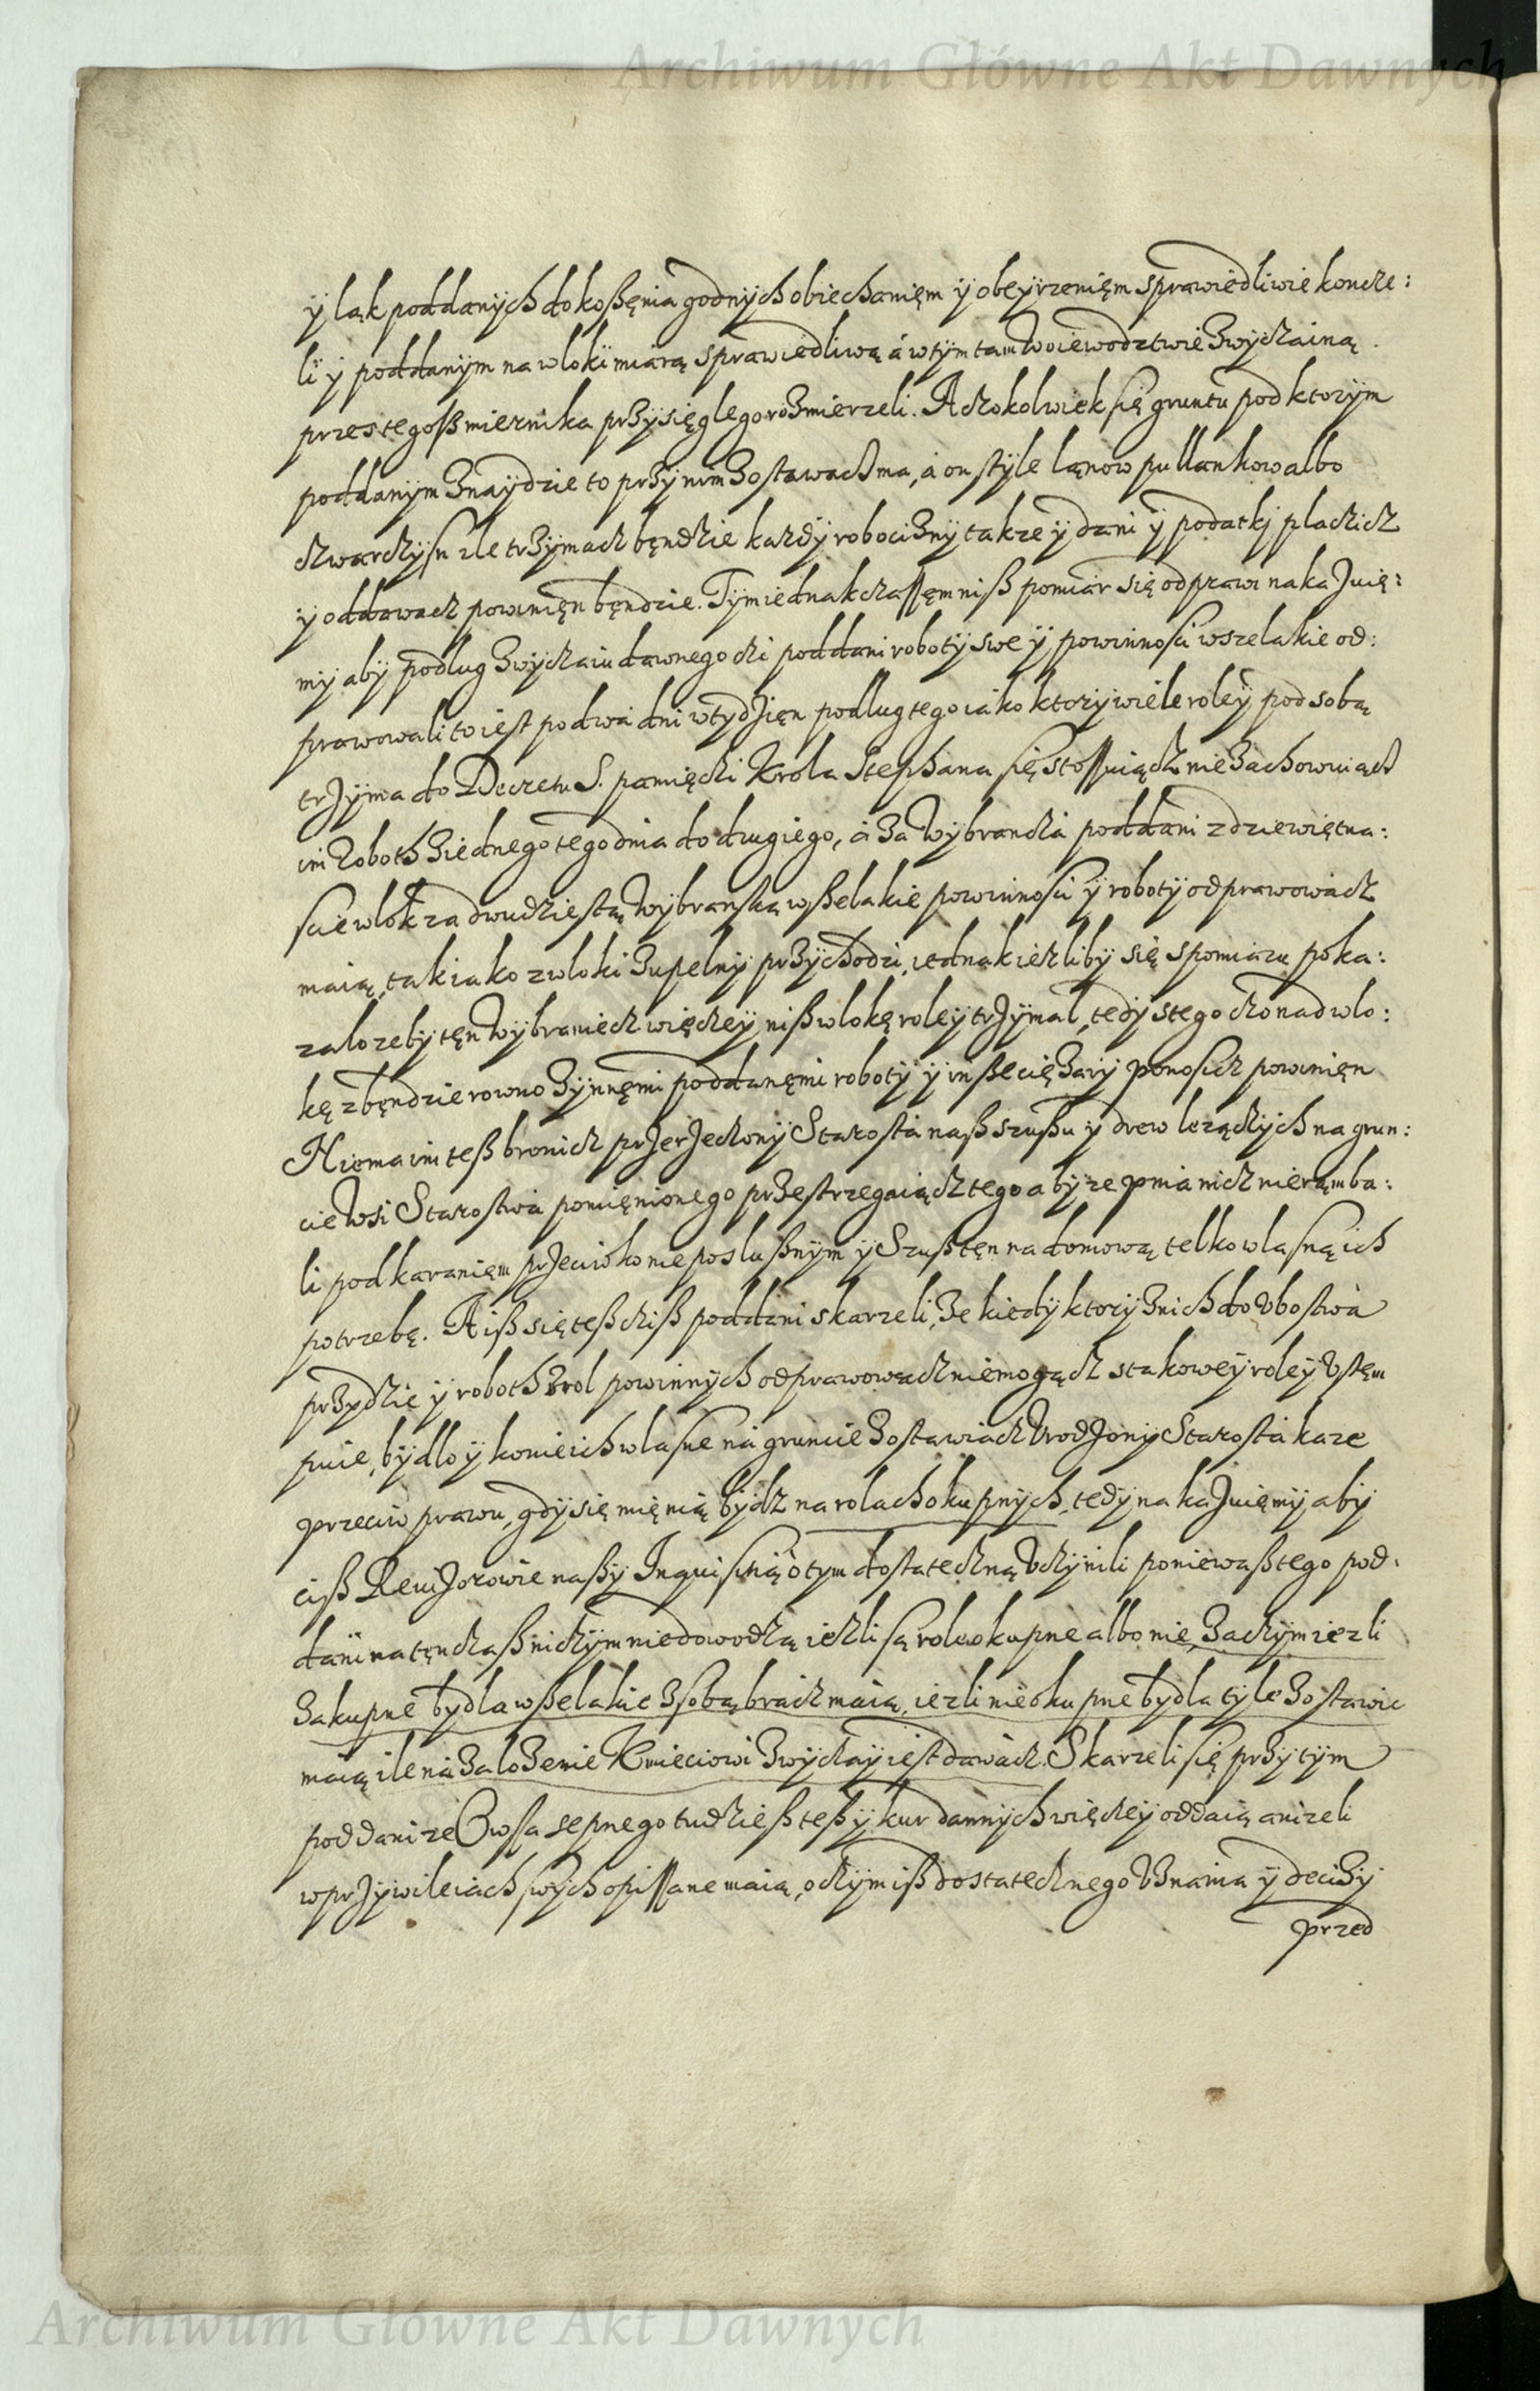 Archiwum Główne Akt Dawnych
ÿ ląk poddanÿch do koßęnia godnÿch obiechanięm ÿ obeÿrzenięm sprawiedliwie koncze:
li ÿ poddanÿm na wloki miarą sprawiedliwą á w tÿm tam Woiewodztwie zwÿczainą.
przes tegoß miernika przÿsięglego rozmierzeli. A czokolwiek się gruntu pod ktorÿm
poddanÿm znaÿdzie to przÿ nim zostawacz ma, á on s tÿle lanow pullankow albo
czwarczÿsn ile trzÿmacz bęndzie kazdÿ robociznÿ takze ÿ dani ÿ podatkj placzicz
ÿ oddawacz powinięn bęndzie. Tÿm iednak czassęm niß pomiar się odprawi nakazuię:
mÿ abÿ podlug zwÿczaiu dawnego czi poddani robotÿ swe ÿ powinnosci wszelakie od:
prawowali to iest po dwa dni w tÿdzięn podlug tego iako ktorÿ wiele roleÿ pod sobą
trzÿma do Decretu S. pamięczi Krola Stephana się stossuiącz nie zachowuiącz
ini Roboth z iednego tegodnia do drugiego, á za Wÿbrancza poddani z dziewiętna:
scie wlok za dwudziestą Wÿbranską wßelakie powinnosci ÿ robotÿ odprawowacz
maią, tak iako z wloki zupelnÿ przÿchodzi, iednak iezlibÿ się s pomiaru poka:
zalo zebÿ tęn Wÿbraniecz więczeÿ niß wlokę roleÿ trzÿmal, tedÿ s tego czo nad wlo:
kę zbęndzie rowno z ÿnnęmi poddanęmi robotÿ ÿ inße ciężarÿ ponosicz powinięn
Nie ma ini teß bronicz przerzeczonÿ Starosta naß szußu ÿ drew lezączÿch na grun:
cie wsi Starostwa pomięnionego przestrzegaiącz tego abÿ ze pnia nicz nie rąmba:
li pod karanięm przeciwko nieposlußnÿm ÿ Szuß tęn na domową telko wlasną ich
potrzebę. A iß się teß cziß poddani skarzeli, ze kiedÿ ktorÿ z nich do Vbostwa
przÿdzie ÿ roboth z rol powinnÿch odprawowacz nie mogącz s takoweÿ roleÿ Vstęm
puie, bÿdlo ÿ konie ich wlasne na gruncie zostawiacz Vrodzonÿ Starosta kaze
przeciw prawu, gdÿ się mięnią bÿdz na rolach okupnÿch, tedÿ nakazuięmÿ abÿ
ciß Rewizorowie naßÿ Inquisitią o tym dostateczną Vczÿnili poniewaß tego pod:
dani na tęn czaß niczÿm nie dowodzą iezli są role okupne albo nie, zaczÿm iezli
zakupne bÿdla wßelakie z sobą bracz maią, iezli nie okupne bÿdla tÿle zostawic
maią ile na zalozenie Kmieciowi zwÿczaÿ iest dawacz. Skarzeli się przÿ tÿm
poddani ze Owsa sepnego tudzieß teß ÿ kur dannÿch więczeÿ oddaią anizeli
w przÿwileiach swÿch opissane maią, o czÿm iß dostatecznego Vznania ÿ decizÿ
przed
Archiwum Główne Akt Dawnych